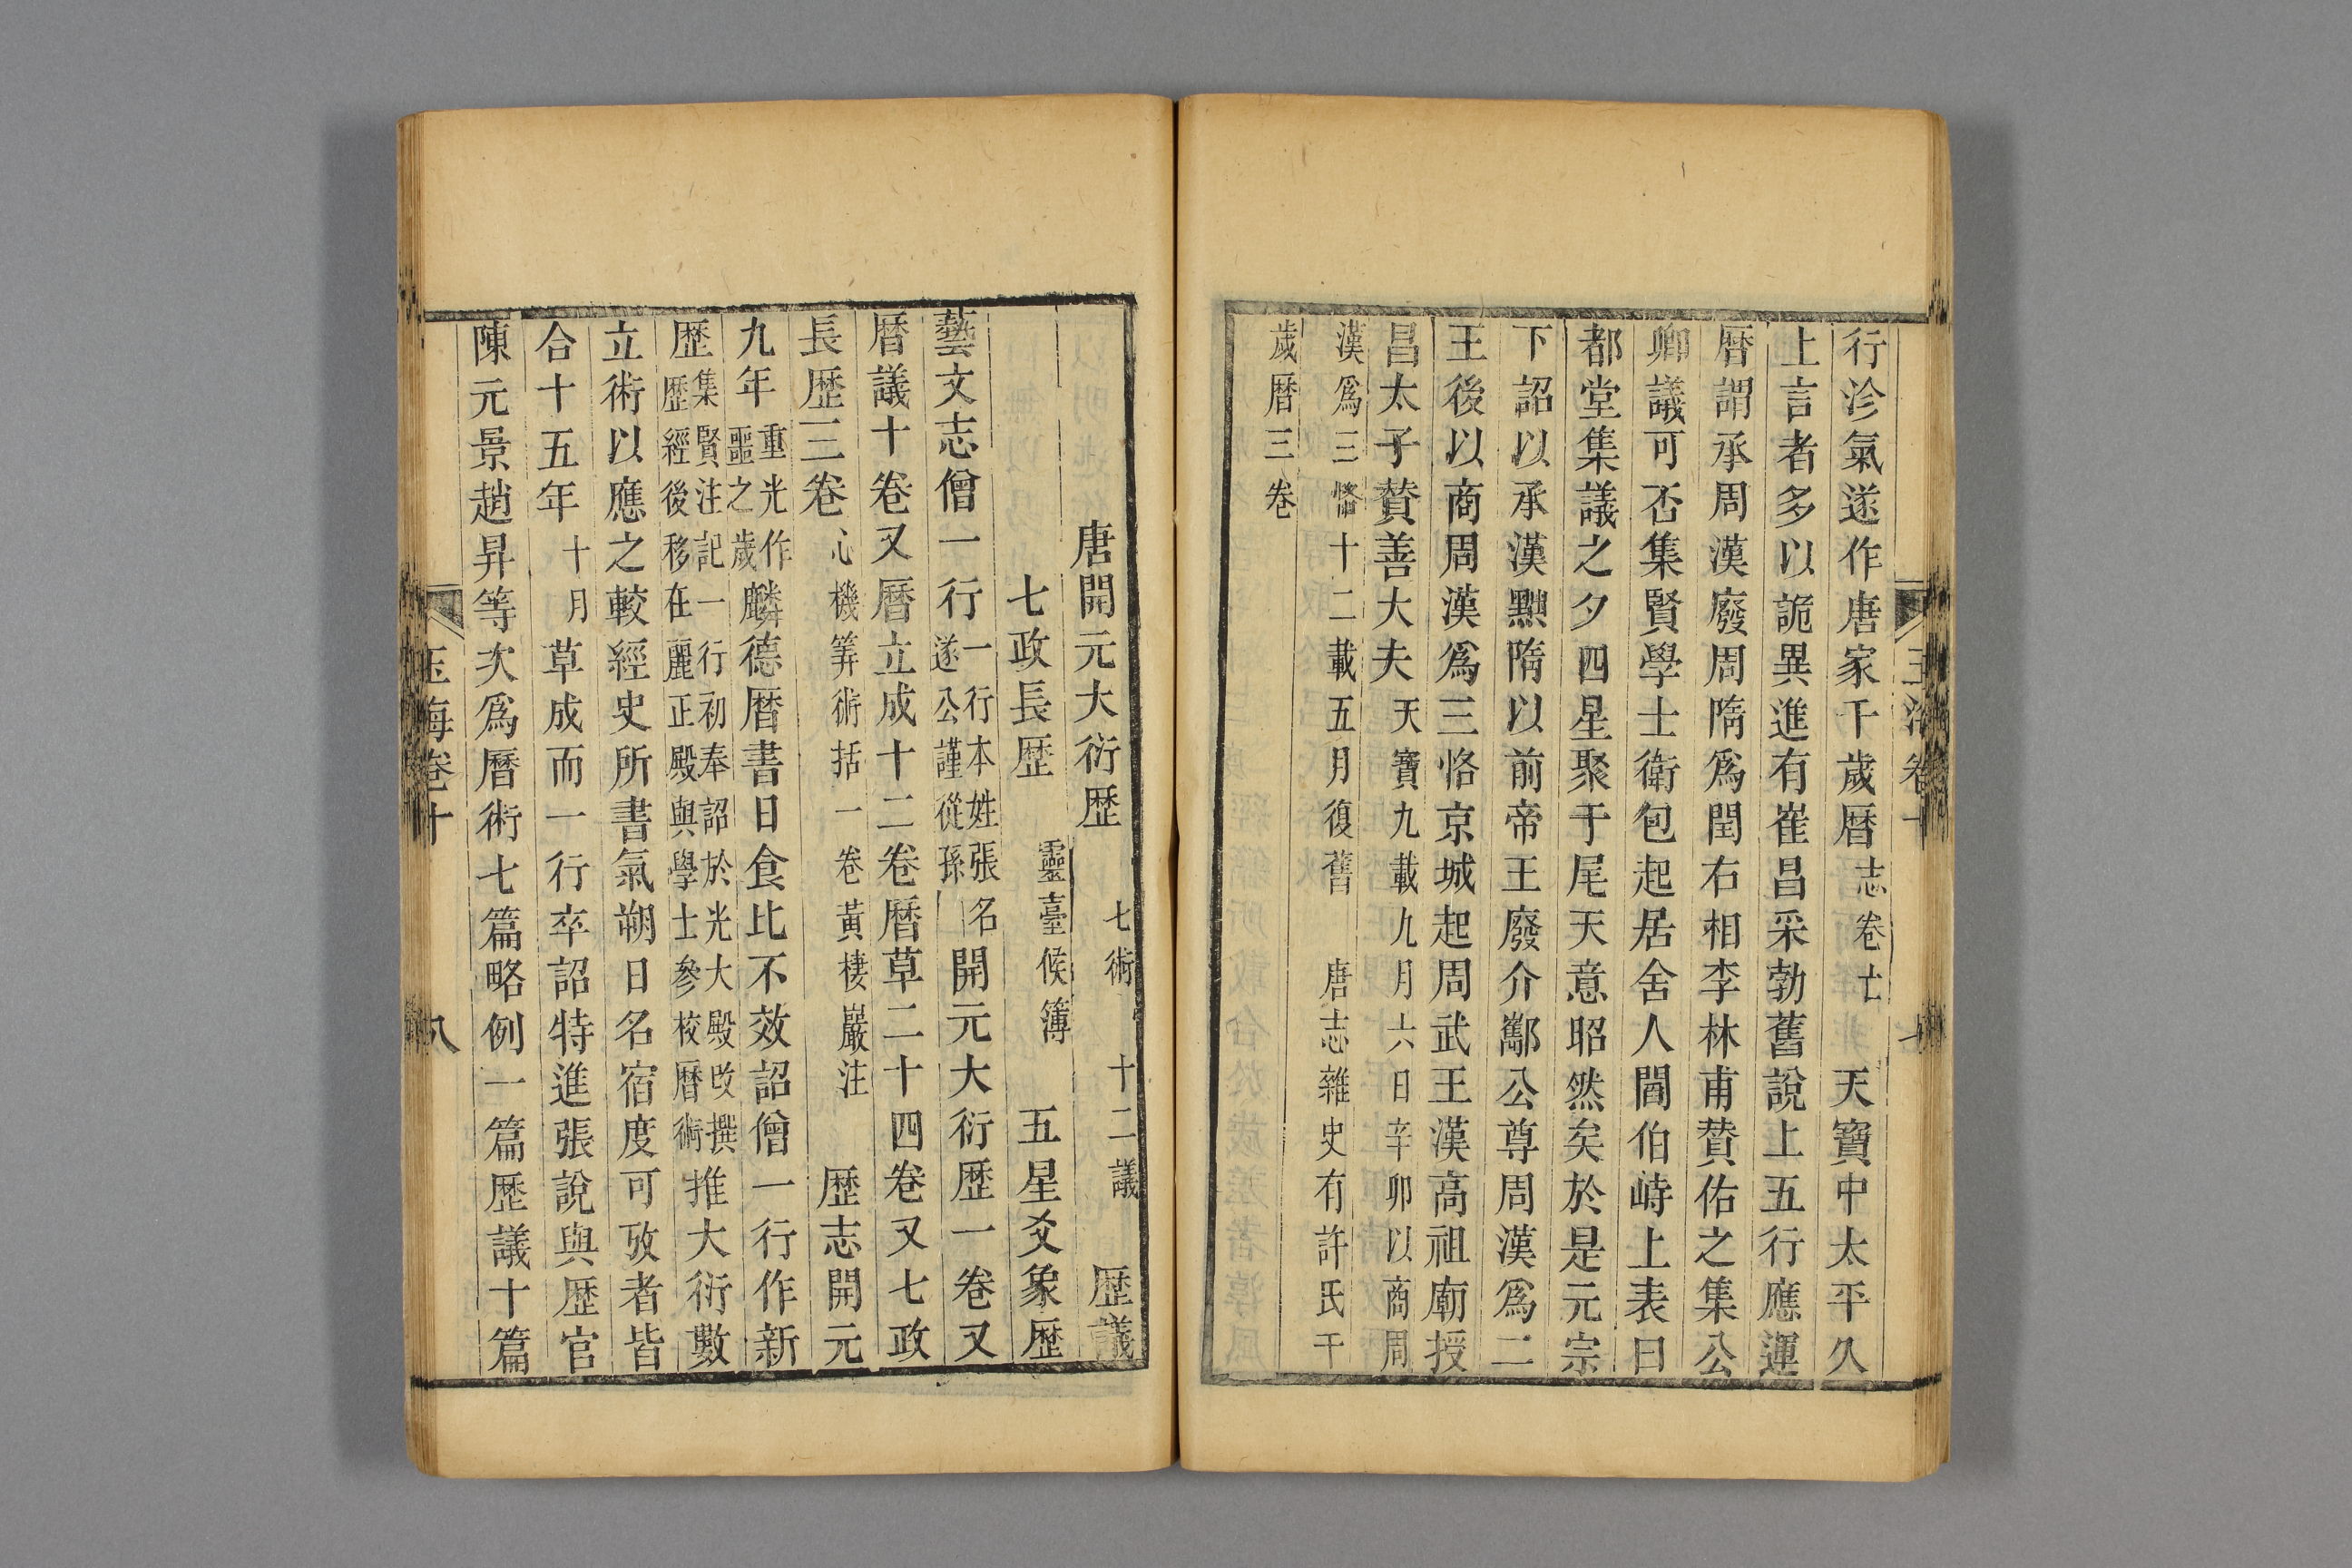 行沴氣遂作唐家千歲曆志卷亡 天寶中太平久
上言者多以詭異進有崔昌采勃舊說上五行應運
曆謂承周漢廢周隋爲閏右相李林甫贊佑之集公
卿議可否集賢學士衛包起居舍人閻伯峙上表曰
都堂集議之夕四星聚于尾天意昭然矣於是元宗
下詔以承漢黜隋以前帝王廢介酅公尊周漢爲二
王後以商周漢爲三恪京城起周武王漢高祖廟授
昌太子贊善大夫天寶九載九月六日辛卯以商周
漢爲三恪十二載五月復舊 唐志雜史有許氏千
歲曆三卷
唐開元大衍歷 七術 十二議 歷議
七政長歷 靈臺候簿 五星爻象歷
藝文志僧一行一行本姓張名遂公謹從孫開元大衍歷一卷又
曆議十卷又曆立成十二卷曆草二十四卷又七政
長歷三卷心機筭術括一卷黃棲巖注 歷志開元
九年重光作噩之歲麟德曆書日食比不效詔僧一行作新
歷集賢注記一行初奉詔於光大殿改撰歷經後移在麗正殿與學士參校曆術推大衍數
立術以應之較經史所書氣朔日名宿度可攷者皆
合十五年十月草成而一行卒詔特進張說與歷官
陳元景趙昇等次爲曆術七篇略例一篇歷議十篇
玉海卷十 八